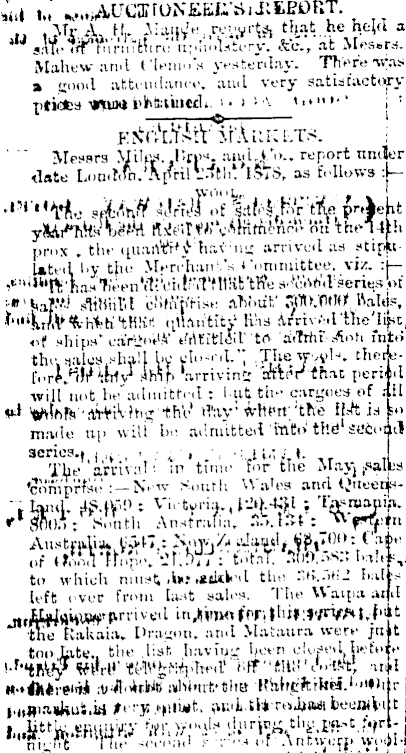 AUCTIONEER'S REPORT.
Mr A. H. reports that he held a
sale of furniture upholstery, &c., at Messrs.
Mahew and Clemo's yesterday. There was
a good attendance, and very satisfactory
prices were obtained.
ENGLISH MARKETS.
Messrs Miles, Bros. and Co., report under
date London, April 25th, 1878, as follows :—
WOOL.
The second series of sales for the present
year has been fixed to commence on the 14th
prox., the quantity having arrived as stipu-
lated by the Merchant's Committee, viz. :—
It has been decided that the second series of
sales should comprise about 300,000 bales,
and when that quantity has arrived the list
of ships' cargoes entitled to admission into
the sales shall be closed." The wools, there-
fore, of any ship arriving after that period
will not be admitted ; but the cargoes of all
wools arriving the day when the list is so
made up will be admitted into the second
series.
The arrivals in time for the May sales
comprise :—New South Wales and Queens-
land, ; Victoria, 120,431 ; Tasmania,
; South Australia, 35,134 ; Western
Australia, 6547 ; New Zealand, 68,700 ; Cape
of Good Hope, ; total, 309,583 bales,
to which must be added the 36,562 bales
left over from last sales. The Waipa and
Halcione arrived in time for this series, but
the Rakaia, Dragon, and Mataura were just
too late, the list having been closed before
they were telegraphed off the coast, and
there is a doubt about the Rangitikei. Our
market is very quiet, and there has been but
little enquiry for wools during the past fort-
night. The second series of Antwerp wool